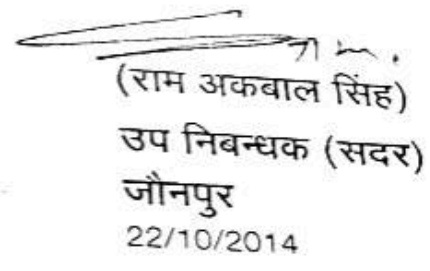 (राम अकबाल सिंह)
उप निबन्धक (सदर)
जौनपुर
22/10/2014